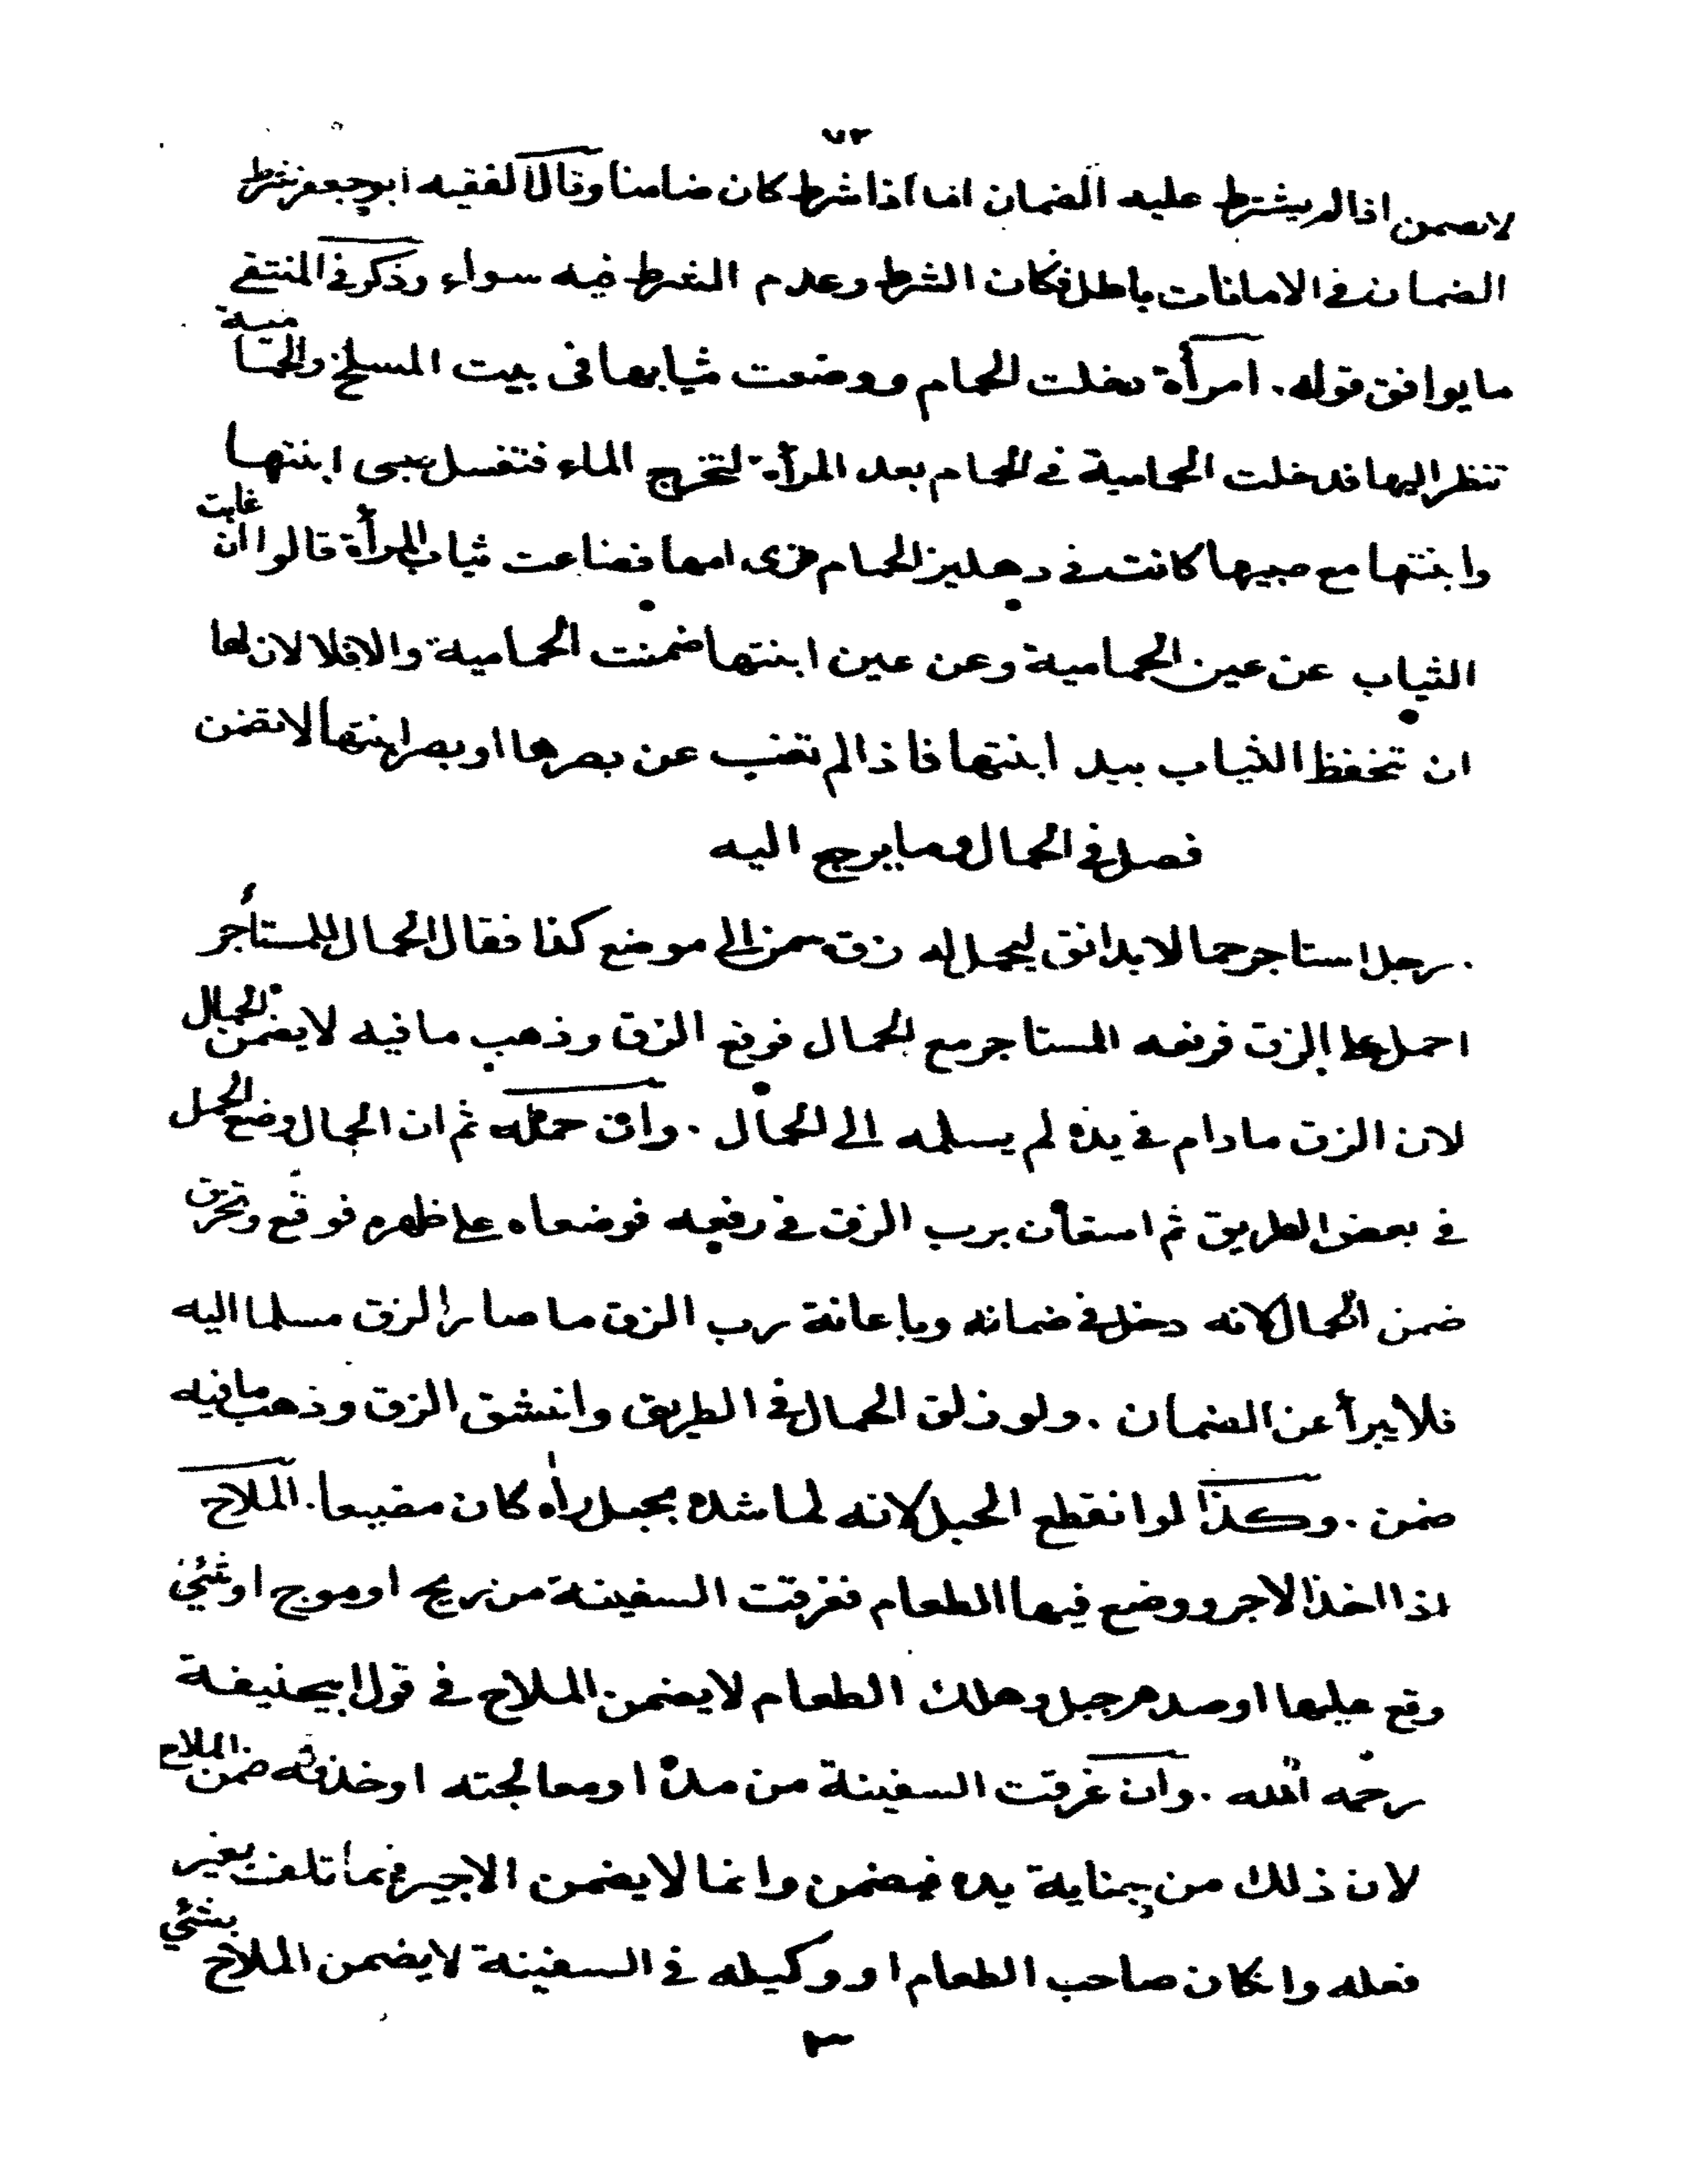 ٧٣
لا يضمن اذا لم يشترط عليه الضمان اما اذا شرط كان ضامنا وقال الفقيه ابو جعفر شرط
الضمان في الامانات باطل فكان الشرط وعدم الشرط فيه سواء وذكر في المنتقى
ما يوافق قوله. امرأة دخلت الحمام ووضعت ثيابها في بيت المسلخ والحمامية
تنظر اليها فدخلت الحمامية في الحمام بعد المرأة لتخرج الماء فتغسل صبي ابنتها
وابنتها مع صبيها كانت في دهليز الحمام فضاعت ثياب المرأة قالوا ان غابت
الثياب عن عين الحمامية وعن عين ابنتها ضمنت الحمامية والا فلا لان لها
ان تحفظ الثياب بيد ابنتها فاذا لم تغب عن بصرها او بصر ابنتها لا تضمن
فصل في الحمال وما يرجع اليه
رجل استاجر حمالا بدانق ليحمل له زق سمن الى موضع كذا فقال الحمال للمستأجر
احمل على الزق فرفعه المستاجر مع الحمال فوقع الزق وذهب ما فيه لا يضمن الحمال
لان الزق ما دام في يده لم يسلمه الى الحمال. وان حمله ثم ان الحمال وضع الحمل
في بعض الطريق ثم استعان برب الزق في رفعه فوضعاه على ظهره فوقع وتخرق
ضمن الحمال لانه دخل في ضمانه وباعانة رب الزق ما صار الزق مسلما اليه
فلا يبرأ عن الضمان. ولو زلق الحمال في الطريق وانشق الزق وذهب ما فيه
ضمن. وكذا لو انقطع الحبل لانه لما شده بحبل واه كان مضيعا. الملاح
اذا اخذ الاجر ووضع فيها الطعام فغرقت السفينة من ريح او موج او شئ
وقع عليها او صدمر جبل وهلك الطعام لا يضمن الملاح في قول ابيحنيفة
رحمه الله. وان غرقت السفينة من مده او معالجته او خذفه ضمن الملاح
لان ذلك من جناية يده فيضمن وانما لا يضمن الاجير فيما تلف بغير
فعله وانكان صاحب الطعام او وكيله في السفينة لا يضمن الملاح بشئ